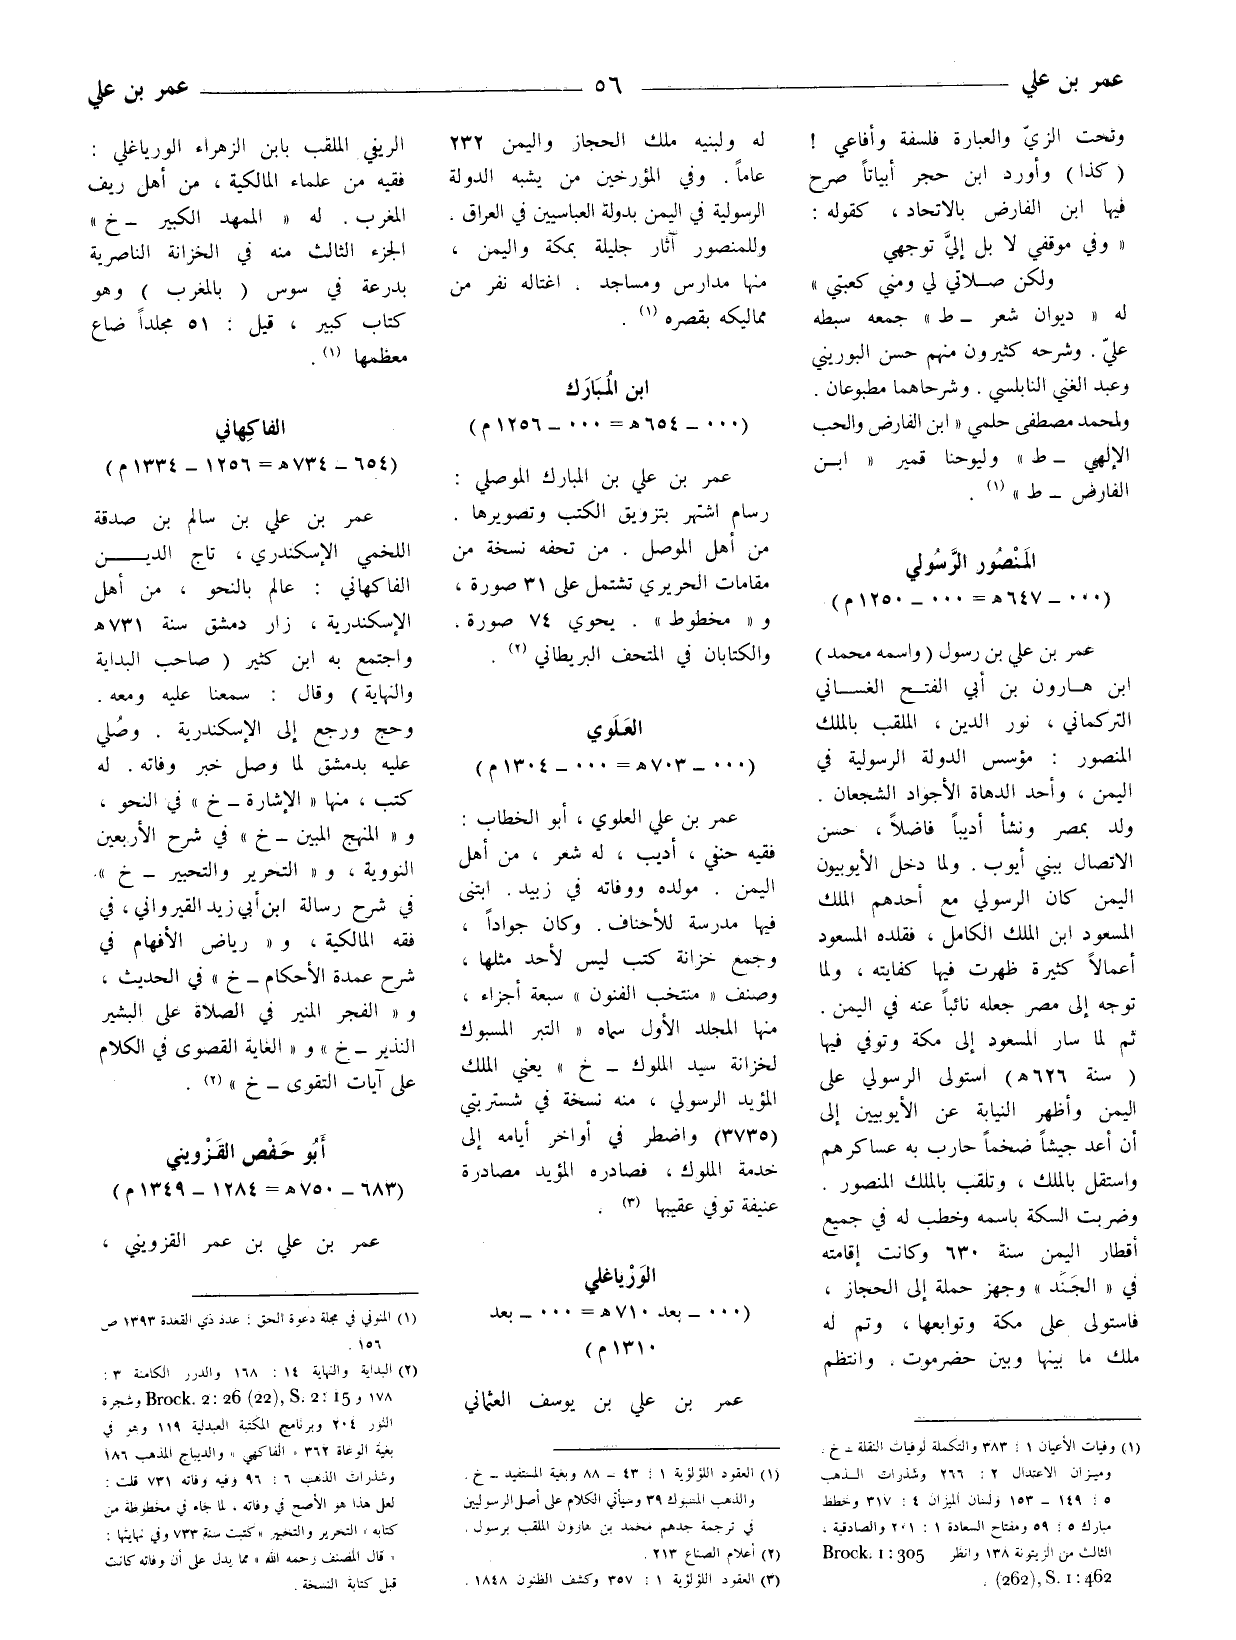 عمر بن علي
٥٦
عمر بن علي
وتحت الزيّ والعبارة فلسفة وأفاعي !
( كذا ) وأورد ابن حجر أبياتاً صرح
فيها ابن الفارض بالاتحاد ، كقوله :
« وفي موقفي لا بل إليَّ توجهي
ولكن صلاتي لي ومني كعبتي »
له « ديوان شعر ــ ط » جمعه سبطه
عليّ . وشرحه كثيرون منهم حسن البوريني
وعبد الغني النابلسي . وشرحاهما مطبوعان .
ولمحمد مصطفى حلمي « ابن الفارض والحب
الإلهي ــ ط » وليوحنا قمير « ابن
الفارض ــ ط » (١) .
المَنْصُور الرَّسُولي
(٠٠٠ ــ ٦٤٧ ه = ٠٠٠ ــ ١٢٥٠ م)
عمر بن علي بن رسول ( واسمه محمد )
ابن هارون بن أبي الفتح الغساني
التركماني ، نور الدين ، الملقب بالملك
المنصور : مؤسس الدولة الرسولية في
اليمن ، وأحد الدهاة الأجواد الشجعان .
ولد بمصر ونشأ أديباً فاضلاً ، حسن
الاتصال ببني أيوب . ولما دخل الأيوبيون
اليمن كان الرسولي مع أحدهم الملك
المسعود ابن الملك الكامل ، فقلده المسعود
أعمالاً كثيرة ظهرت فيها كفايته ، ولما
توجه إلى مصر جعله نائباً عنه في اليمن .
ثم لما سار المسعود إلى مكة وتوفي فيها
( سنة ٦٢٦ ه ) استولى الرسولي على
اليمن وأظهر النيابة عن الأيوبيين إلى
أن أعد جيشاً ضخماً حارب به عساكرهم
واستقل بالملك ، وتلقب بالملك المنصور .
وضربت السكة باسمه وخطب له في جميع
أقطار اليمن سنة ٦٣٠ وكانت إقامته
في « الجَنَد » وجهز حملة إلى الحجاز ،
فاستولى على مكة وتوابعها ، وتم له
ملك ما بينها وبين حضرموت . وانتظم
(١) وفيات الأعيان ١ : ٣٨٣ والتكملة لوفيات النقلة ــ خ .
وميزان الاعتدال ٢ : ٢٦٦ وشذرات الذهب
٥ : ١٤٩ ــ ١٥٣ ولسان الميزان ٤ : ٣١٧ وخطط
مبارك ٥ : ٥٩ ومفتاح السعادة ١ : ٢٠١ والصادقية ،
الثالث من الزيتونة ١٣٨ وانظر Brock. 1 : 305
(262), S. 1 : 462 .
له ولبنيه ملك الحجاز واليمن ٢٣٢
عاماً . وفي المؤرخين من يشبه الدولة
الرسولية في اليمن بدولة العباسيين في العراق .
وللمنصور آثار جليلة بمكة واليمن ،
منها مدارس ومساجد . اغتاله نفر من
مماليكه بقصره (١) .
ابن المُبَارَك
(٠٠٠ ــ ٦٥٤ ه = ٠٠٠ ــ ١٢٥٦ م)
عمر بن علي بن المبارك الموصلي :
رسام اشتهر بتزويق الكتب وتصويرها .
من أهل الموصل . من تحفه نسخة من
مقامات الحريري تشتمل على ٣١ صورة ،
و « مخطوط » . يحوي ٧٤ صورة .
والكتابان في المتحف البريطاني (٢) .
العَلَوي
(٠٠٠ ــ ٧٠٣ ه = ٠٠٠ ــ ١٣٠٤ م)
عمر بن علي العلوي ، أبو الخطاب :
فقيه حنفي ، أديب ، له شعر ، من أهل
اليمن . مولده ووفاته في زبيد . ابتنى
فيها مدرسة للأحناف . وكان جواداً ،
وجمع خزانة كتب ليس لأحد مثلها ،
وصنف « منتخب الفنون » سبعة أجزاء ،
منها المجلد الأول سماه « التبر المسبوك
لخزانة سيد الملوك ــ خ » يعني الملك
المؤيد الرسولي ، منه نسخة في شستربتي
(٣٧٣٥) واضطر في أواخر أيامه إلى
خدمة الملوك ، فصادره المؤيد مصادرة
عنيفة توفي عقيبها (٣) .
الوَرْياغلي
(٠٠٠ ــ بعد ٧١٠ ه = ٠٠٠ ــ بعد
١٣١٠ م)
عمر بن علي بن يوسف العثماني
(١) العقود اللؤلؤية ١ : ٤٣ ــ ٨٨ وبغية المستفيد ــ خ .
والذهب المسبوك ٣٩ وسيأتي الكلام على أصل الرسوليين
في ترجمة جدهم محمد بن هارون الملقب برسول .
(٢) أعلام الصناع ٢١٣ .
(٣) العقود اللؤلؤية ١ : ٣٥٧ وكشف الظنون ١٨٤٨ .
الريفي الملقب بابن الزهراء الورياغلي :
فقيه من علماء المالكية ، من أهل ريف
المغرب . له « الممهد الكبير ــ خ »
الجزء الثالث منه في الخزانة الناصرية
بدرعة في سوس ( بالمغرب ) وهو
كتاب كبير ، قيل : ٥١ مجلداً ضاع
معظمها (١) .
الفاكِهاني
(٦٥٤ ــ ٧٣٤ ه = ١٢٥٦ ــ ١٣٣٤ م)
عمر بن علي بن سالم بن صدقة
اللخمي الإسكندري ، تاج الديــن
الفاكهاني : عالم بالنحو ، من أهل
الإسكندرية ، زار دمشق سنة ٧٣١ ه
واجتمع به ابن كثير ( صاحب البداية
والنهاية ) وقال : سمعنا عليه ومعه .
وحج ورجع إلى الإسكندرية . وصُلي
عليه بدمشق لما وصل خبر وفاته . له
كتب ، منها « الإشارة ــ خ » في النحو ،
و « المنهج المبين ــ خ » في شرح الأربعين
النووية ، و « التحرير والتحبير ــ خ »
في شرح رسالة ابن أبي زيد القيرواني ، في
فقه المالكية ، و « رياض الأفهام في
شرح عمدة الأحكام ــ خ » في الحديث ،
و « الفجر المنير في الصلاة على البشير
النذير ــ خ » و « الغاية القصوى في الكلام
على آيات التقوى ــ خ » (٢) .
أَبُو حَفْص القَزْويني
(٦٨٣ ــ ٧٥٠ ه = ١٢٨٤ ــ ١٣٤٩ م)
عمر بن علي بن عمر القزويني ،
(١) المنوني في مجلة دعوة الحق : عدد ذي القعدة ١٣٩٣ ص
١٥٦ .
(٢) البداية والنهاية ١٤ : ١٦٨ والدرر الكامنة ٣ :
١٧٨ و Brock. 2 : 26 (22), S. 2 : 15 وشجرة
النور ٢٠٤ وبرنامج المكتبة العبدلية ١١٩ وهو في
بغية الوعاة ٣٦٢ « الفاكهي » والديباج المذهب ١٨٦
وشذرات الذهب ٦ : ٩٦ وفيه وفاته ٧٣١ قلت :
لعل هذا هو الأصح في وفاته ، لما جاء في مخطوطة من
كتابه « التحرير والتخبير » كتبت سنة ٧٣٣ وفي نهايتها :
« قال المصنف رحمه الله » مما يدل على أن وفاته كانت
قبل كتابة النسخة .